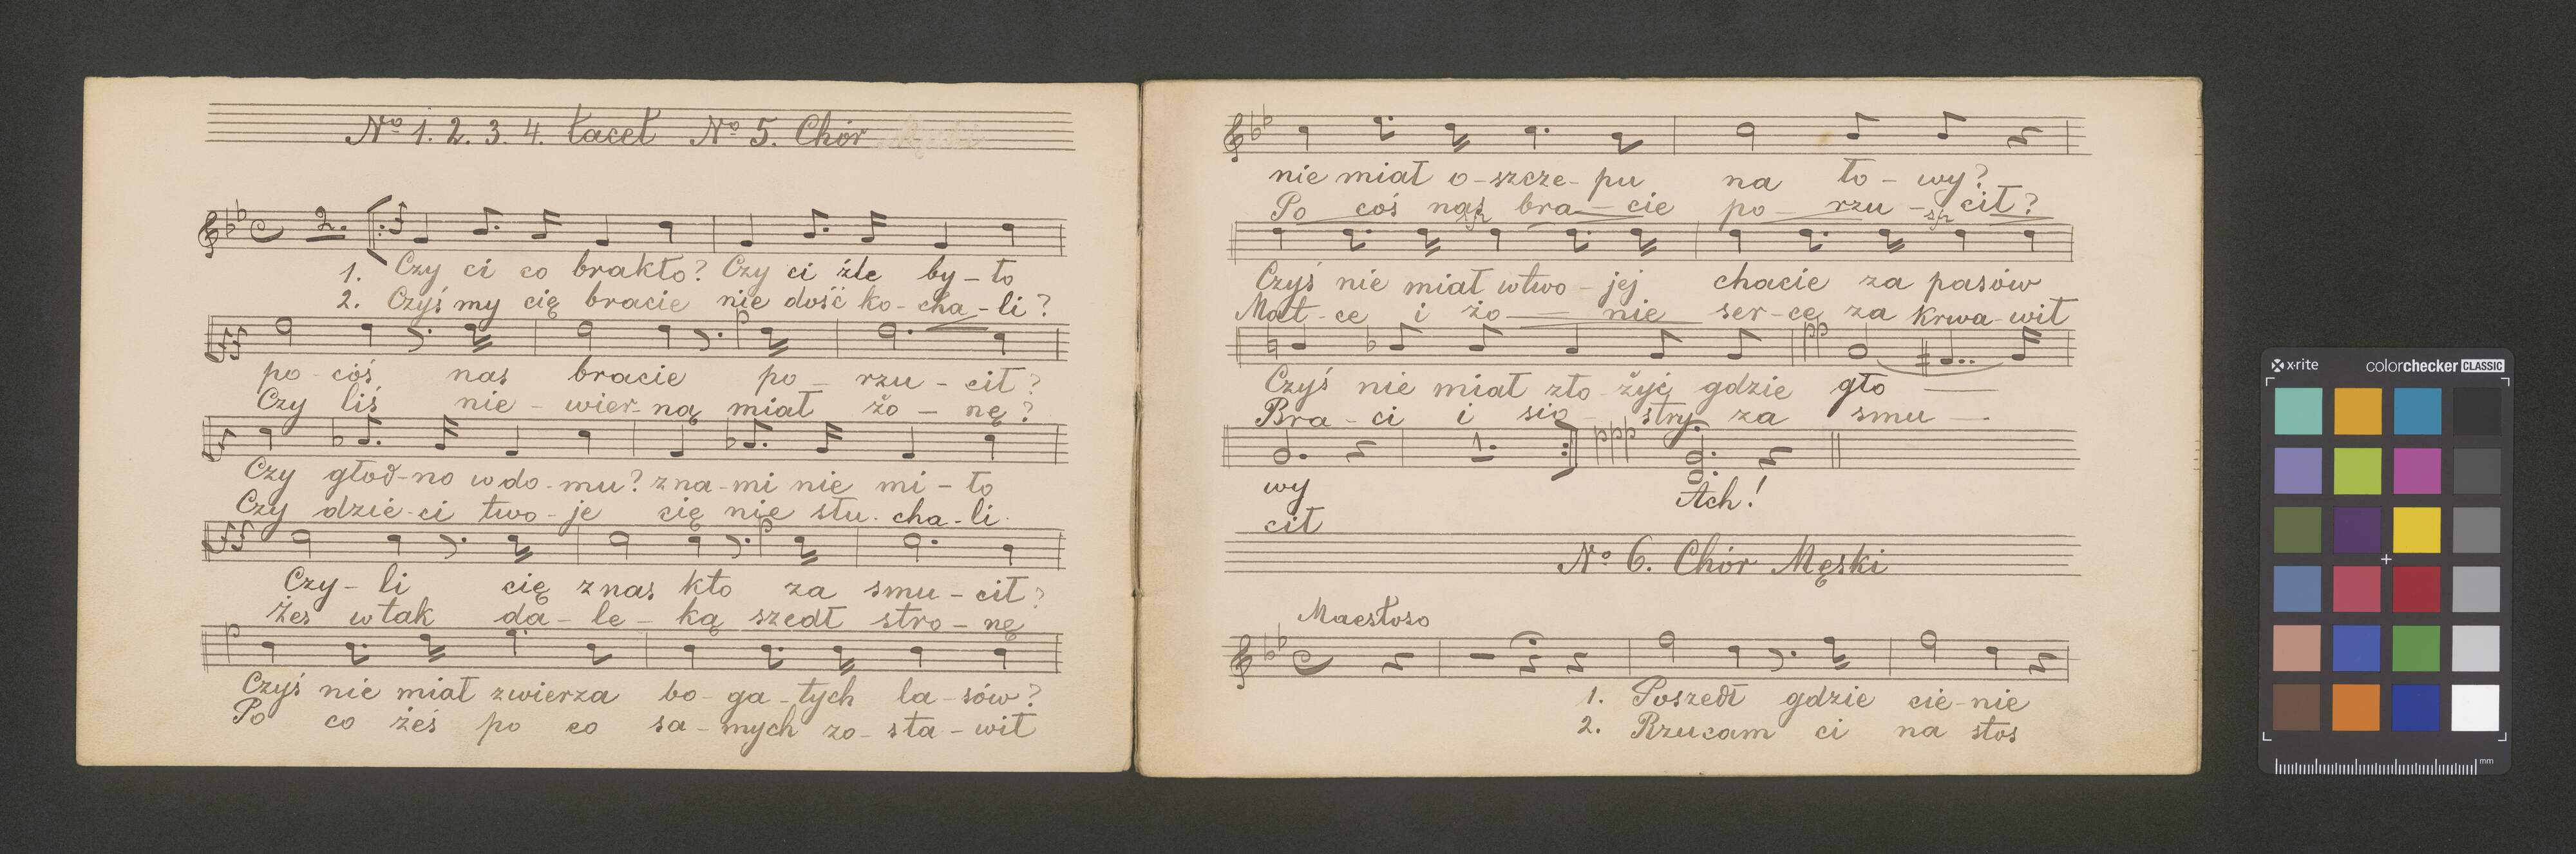 Nº 1. 2. 3. 4. tacet Nº 5. Chór
1. Czy ci co brakło? Czy ci źle by-ło
2. Czyś my cię bracie nie dość ko-cha-li?
p
po-cóś nas bracie po-rzu-cił?
Czy liś nie-wier-ną miał żo-nę?
Czy głod-no w do-mu? z na-mi nie mi-ło
Czy dzie-ci two-je cię nie słu-cha-li.
p
Czy-li cię z nas kto za smu-cił?
Żeś w tak da-le-ką szedł stro-nę
p
Czyś nie miał zwierza bo-ga-tych la-sów?
Po co żeś po co sa-mych zo-sta-wił
nie miał o-szcze-pu na ło-wy?
Po coś nas bra-cie po-rzu-cił?
sp sp
Czyś nie miał w two-jej chacie za pasów
Mat-ce i żo-nie ser-ce za krwa-wił
pp
Czyś nie miał zło żyć gdzie gło-
Bra-ci i sio-stry za smu-
1. ppp
wy Ach!
cił
Nº 6. Chór Męski
Maestoso
1. Poszedł gdzie cie-nie
2. Rzucam ci na stos
x-rite colorchecker CLASSIC
mm